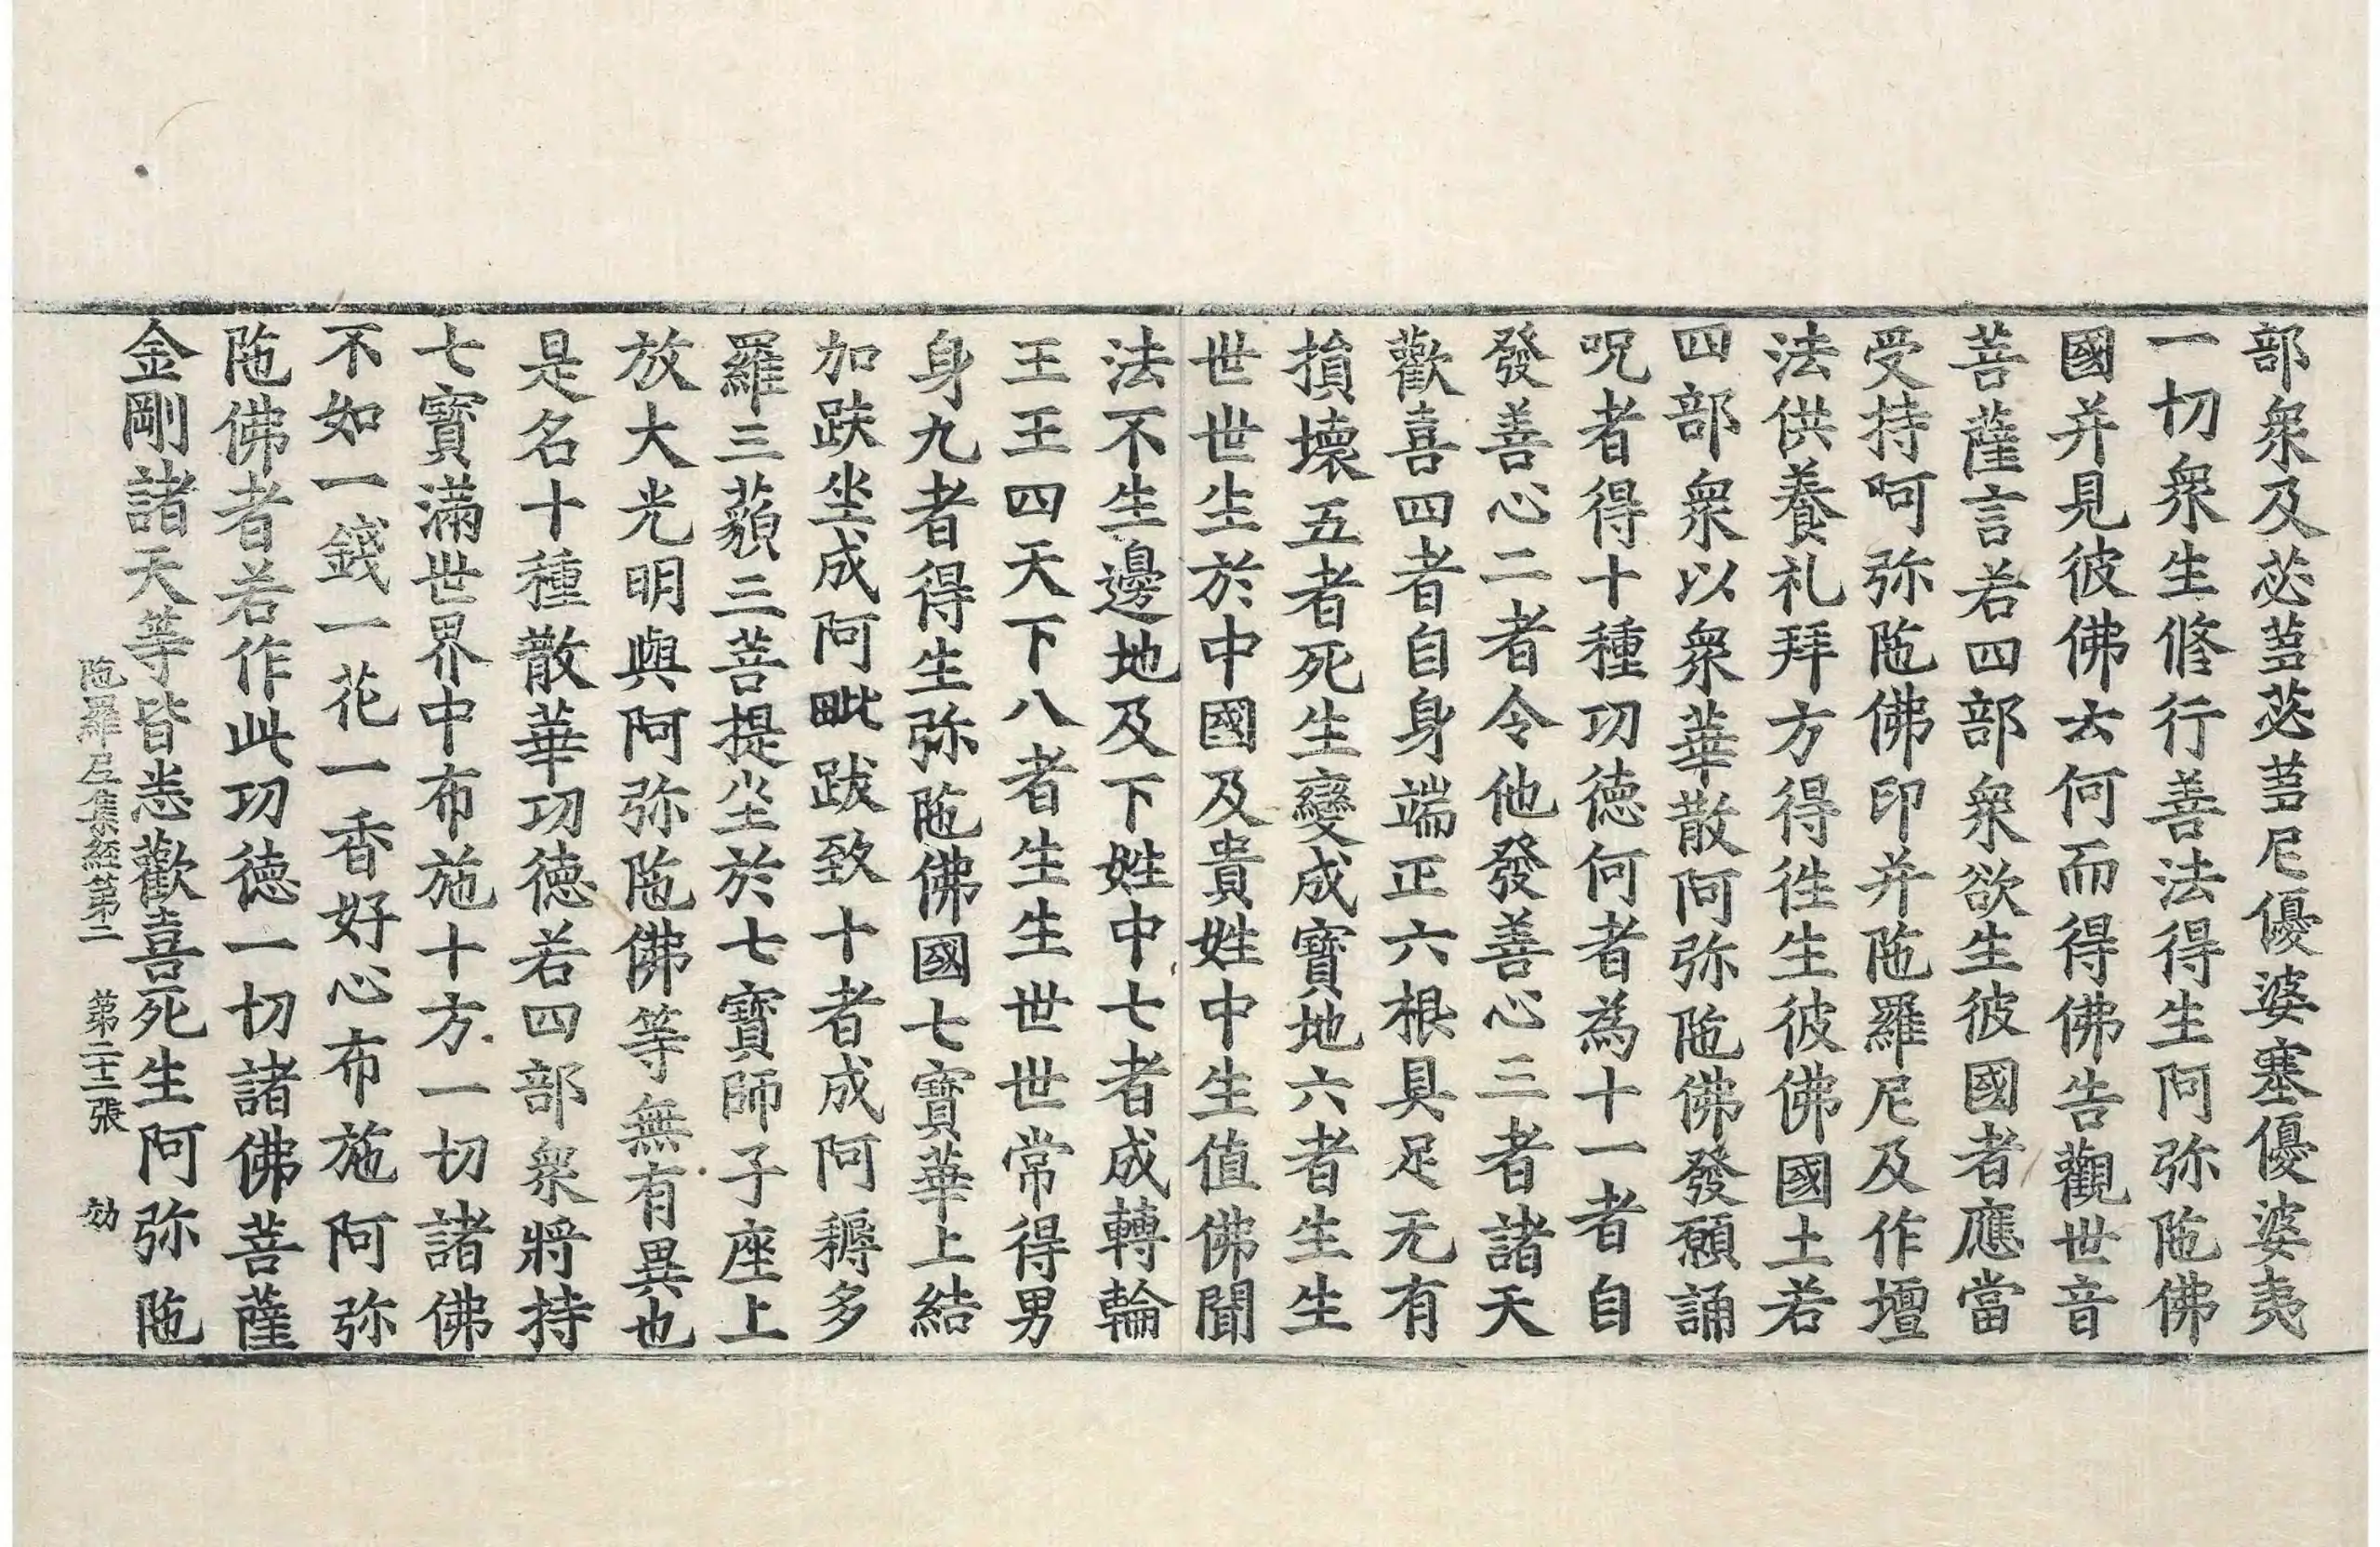 部衆及苾蒭苾蒭尼優婆塞優婆夷
一切衆生修行善法得生阿弥陁佛
國并見彼佛云何而得佛告觀世音
菩薩言若四部衆欲生彼國者應當
受持阿弥陁佛印并陁羅尼及作壇
法供養礼拜方得徃生彼佛國土若
四部衆以衆華散阿弥陁佛發願誦
呪者得十種功德何者為十一者自
發善心二者令他發善心三者諸天
歡喜四者自身端正六根具足无有
損壞五者死生變成寶地六者生生
世世生於中國及貴姓中生值佛聞
法不生邊地及下姓中七者成轉輪
王王四天下八者生生世世常得男
身九者得生弥陁佛國七寶華上結
加趺坐成阿毗跋致十者成阿耨多
羅三藐三菩提坐於七寶師子座上
放大光明與阿弥陁佛等無有異也
是名十種散華功德若四部衆將持
七寶滿世界中布施十方一切諸佛
不如一錢一花一香好心布施阿弥
陁佛者若作此功德一切諸佛菩薩
金剛諸天等皆悉歡喜死生阿弥陁
陁羅尼集經第二 第二十二張 劾